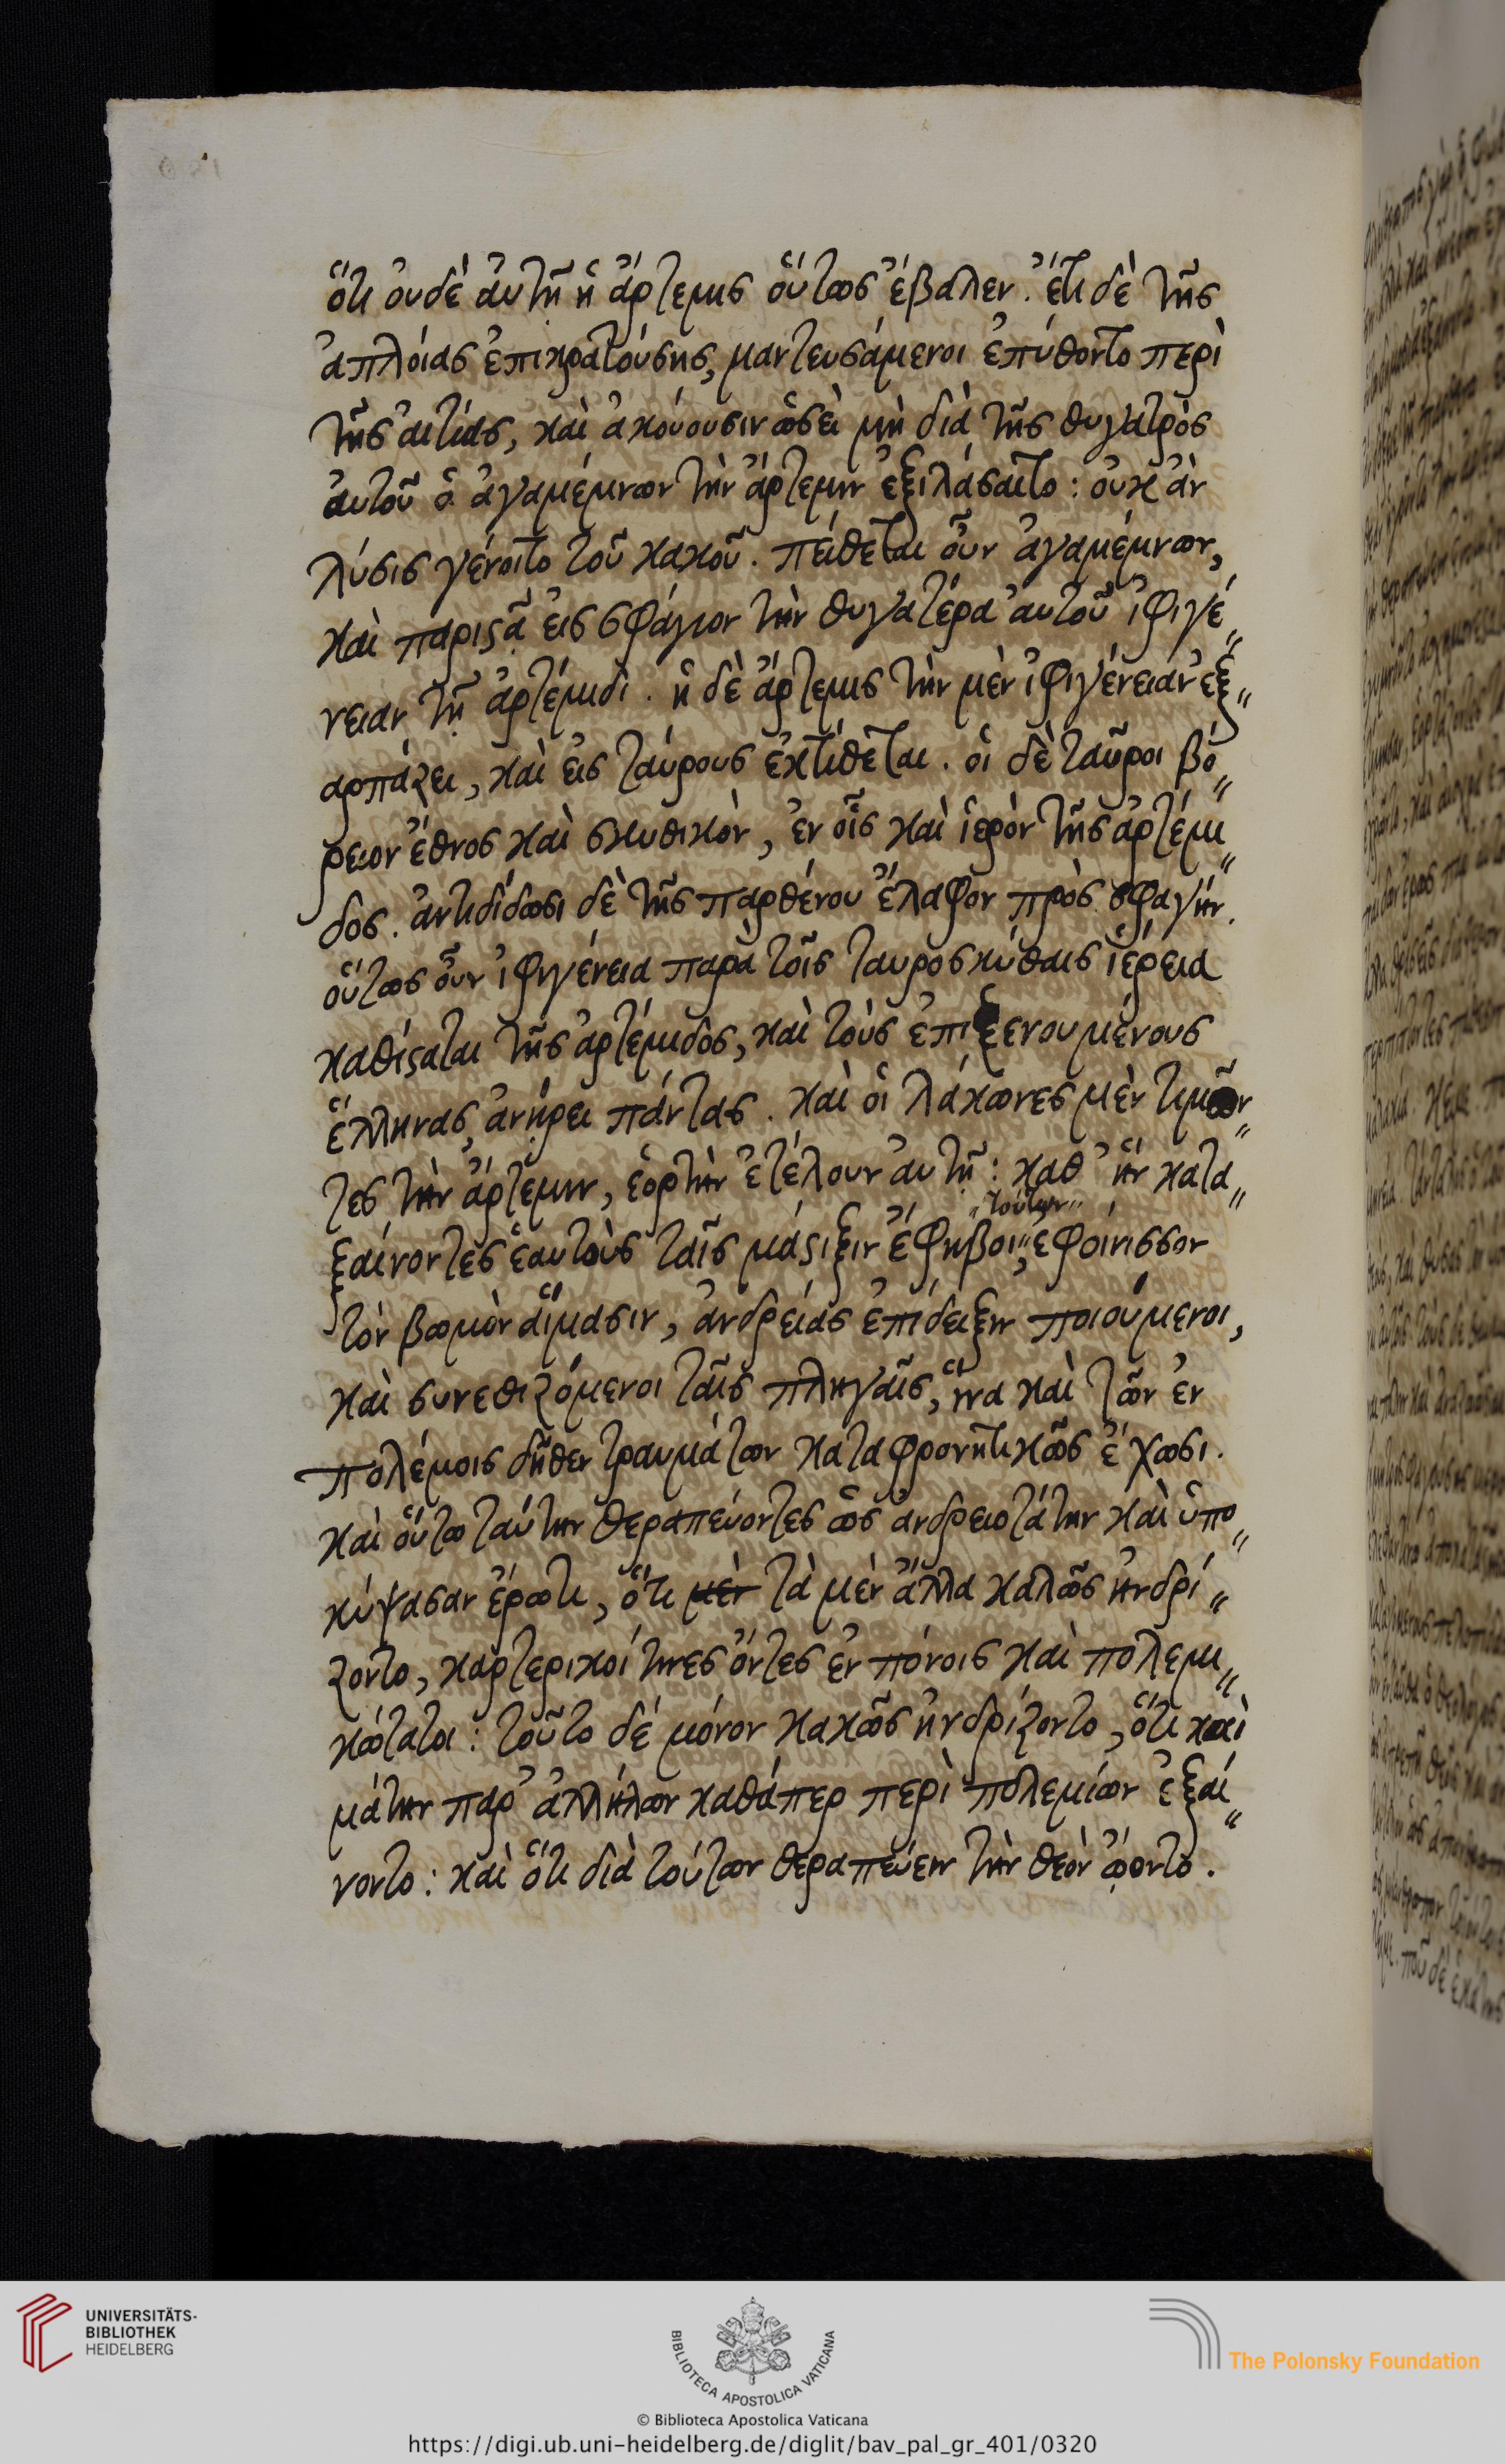 ὅτι οὐδὲ αὐτῆ ἡ ἄρτεμις οὕτως ἔβαλεν. ἔτι δὲ τῆς
ἀπλοίας ἐπικρατούσης, μαντευσάμενοι ἐπύθοντο περὶ
τῆς αἰτίας, καὶ ἀκούουσιν ὡς εἰ μὴ διὰ τῆς θυγατρὸς
αὐτοῦ ὁ ἀγαμέμνων τὴν ἄρτεμιν ἐξιλάσαιτο: οὐκ ἂν
λύσις γένοιτο τοῦ κακοῦ. πείθεται οὖν ἀγαμέμνων,
καὶ παριστᾷ εἰς σφάγιον τὴν θυγατέρα αὐτοῦ ἰφιγέ„
νειαν τῇ ἀρτέμιδι. ἡ δὲ ἄρτεμις τὴν μὲν ἰφιγένειαν ἐξ„
αρπάζει, καὶ εἰς ταύρους ἐκτίθεται. οἱ δὲ ταῦροι βό„
ρειον ἔθνος καὶ σκυθικὸν, ἐν οἷς καὶ ἱερὸν τῆς ἀρτέμι„
δος. ἀντιδίδωσι δὲ τῆς παρθένου ἔλαφον πρὸς σφαγήν.
οὕτως οὖν ἰφιγένεια παρὰ τοῖς ταυροσκύθαις ἱέρεια
καθίσταται τῆς ἀρτέμιδος, καὶ τοὺς ἐπιξενουμένους
ἕλληνας, ἀνῄρει πάντας. καὶ οἱ λάκωνες μὲν τιμῶν„
τες τὴν ἄρτεμιν, ἑορτὴν ἐτέλουν αὐτῇ: καθ' ἣν κατα„
„τούτων„
ξαίνοντες ἑαυτοὺς ταῖς μάστιξιν ἔφηβοι„, ἐφοίνισσον
τὸν βωμὸν αἵμασιν, ἀνδρείας ἐπίδειξιν ποιούμενοι,
καὶ συνεθιζόμενοι ταῖς πληγαῖς, ἵνα καὶ τῶν ἐν
πολέμοις δῆθεν τραυμάτων καταφρονητικῶς ἔχωσι.
καὶ οὕτω ταύτην θεραπεύοντες ὡς ἀνδρειοτάτην καὶ ὑπο„
κύψασαν ἔρωτι, ὅτι μὲν τὰ μὲν ἄλλα καλῶς ἠνδρί„
ζοντο, καρτερικοί τινες ὄντες ἐν πόνοις καὶ πολεμι„
κώτατοι: τοῦτο δέ μόνον κακῶς ἠνδρίζοντο, ὅτι καὶ
μάτην παρ' ἀλλήλων καθάπερ περὶ πολεμίων ἐξαί„
νοντο: καὶ ὅτι διὰ τούτων θεραπεύειν τὴν θεὸν ᾤοντο.
UNIVERSITÄTS-
BIBLIOTHEK
HEIDELBERG
BIBLIOTECA APOSTOLICA VATICANA
The Polonsky Foundation
© Biblioteca Apostolica Vaticana
https://digi.ub.uni-heidelberg.de/diglit/bav_pal_gr_401/0320